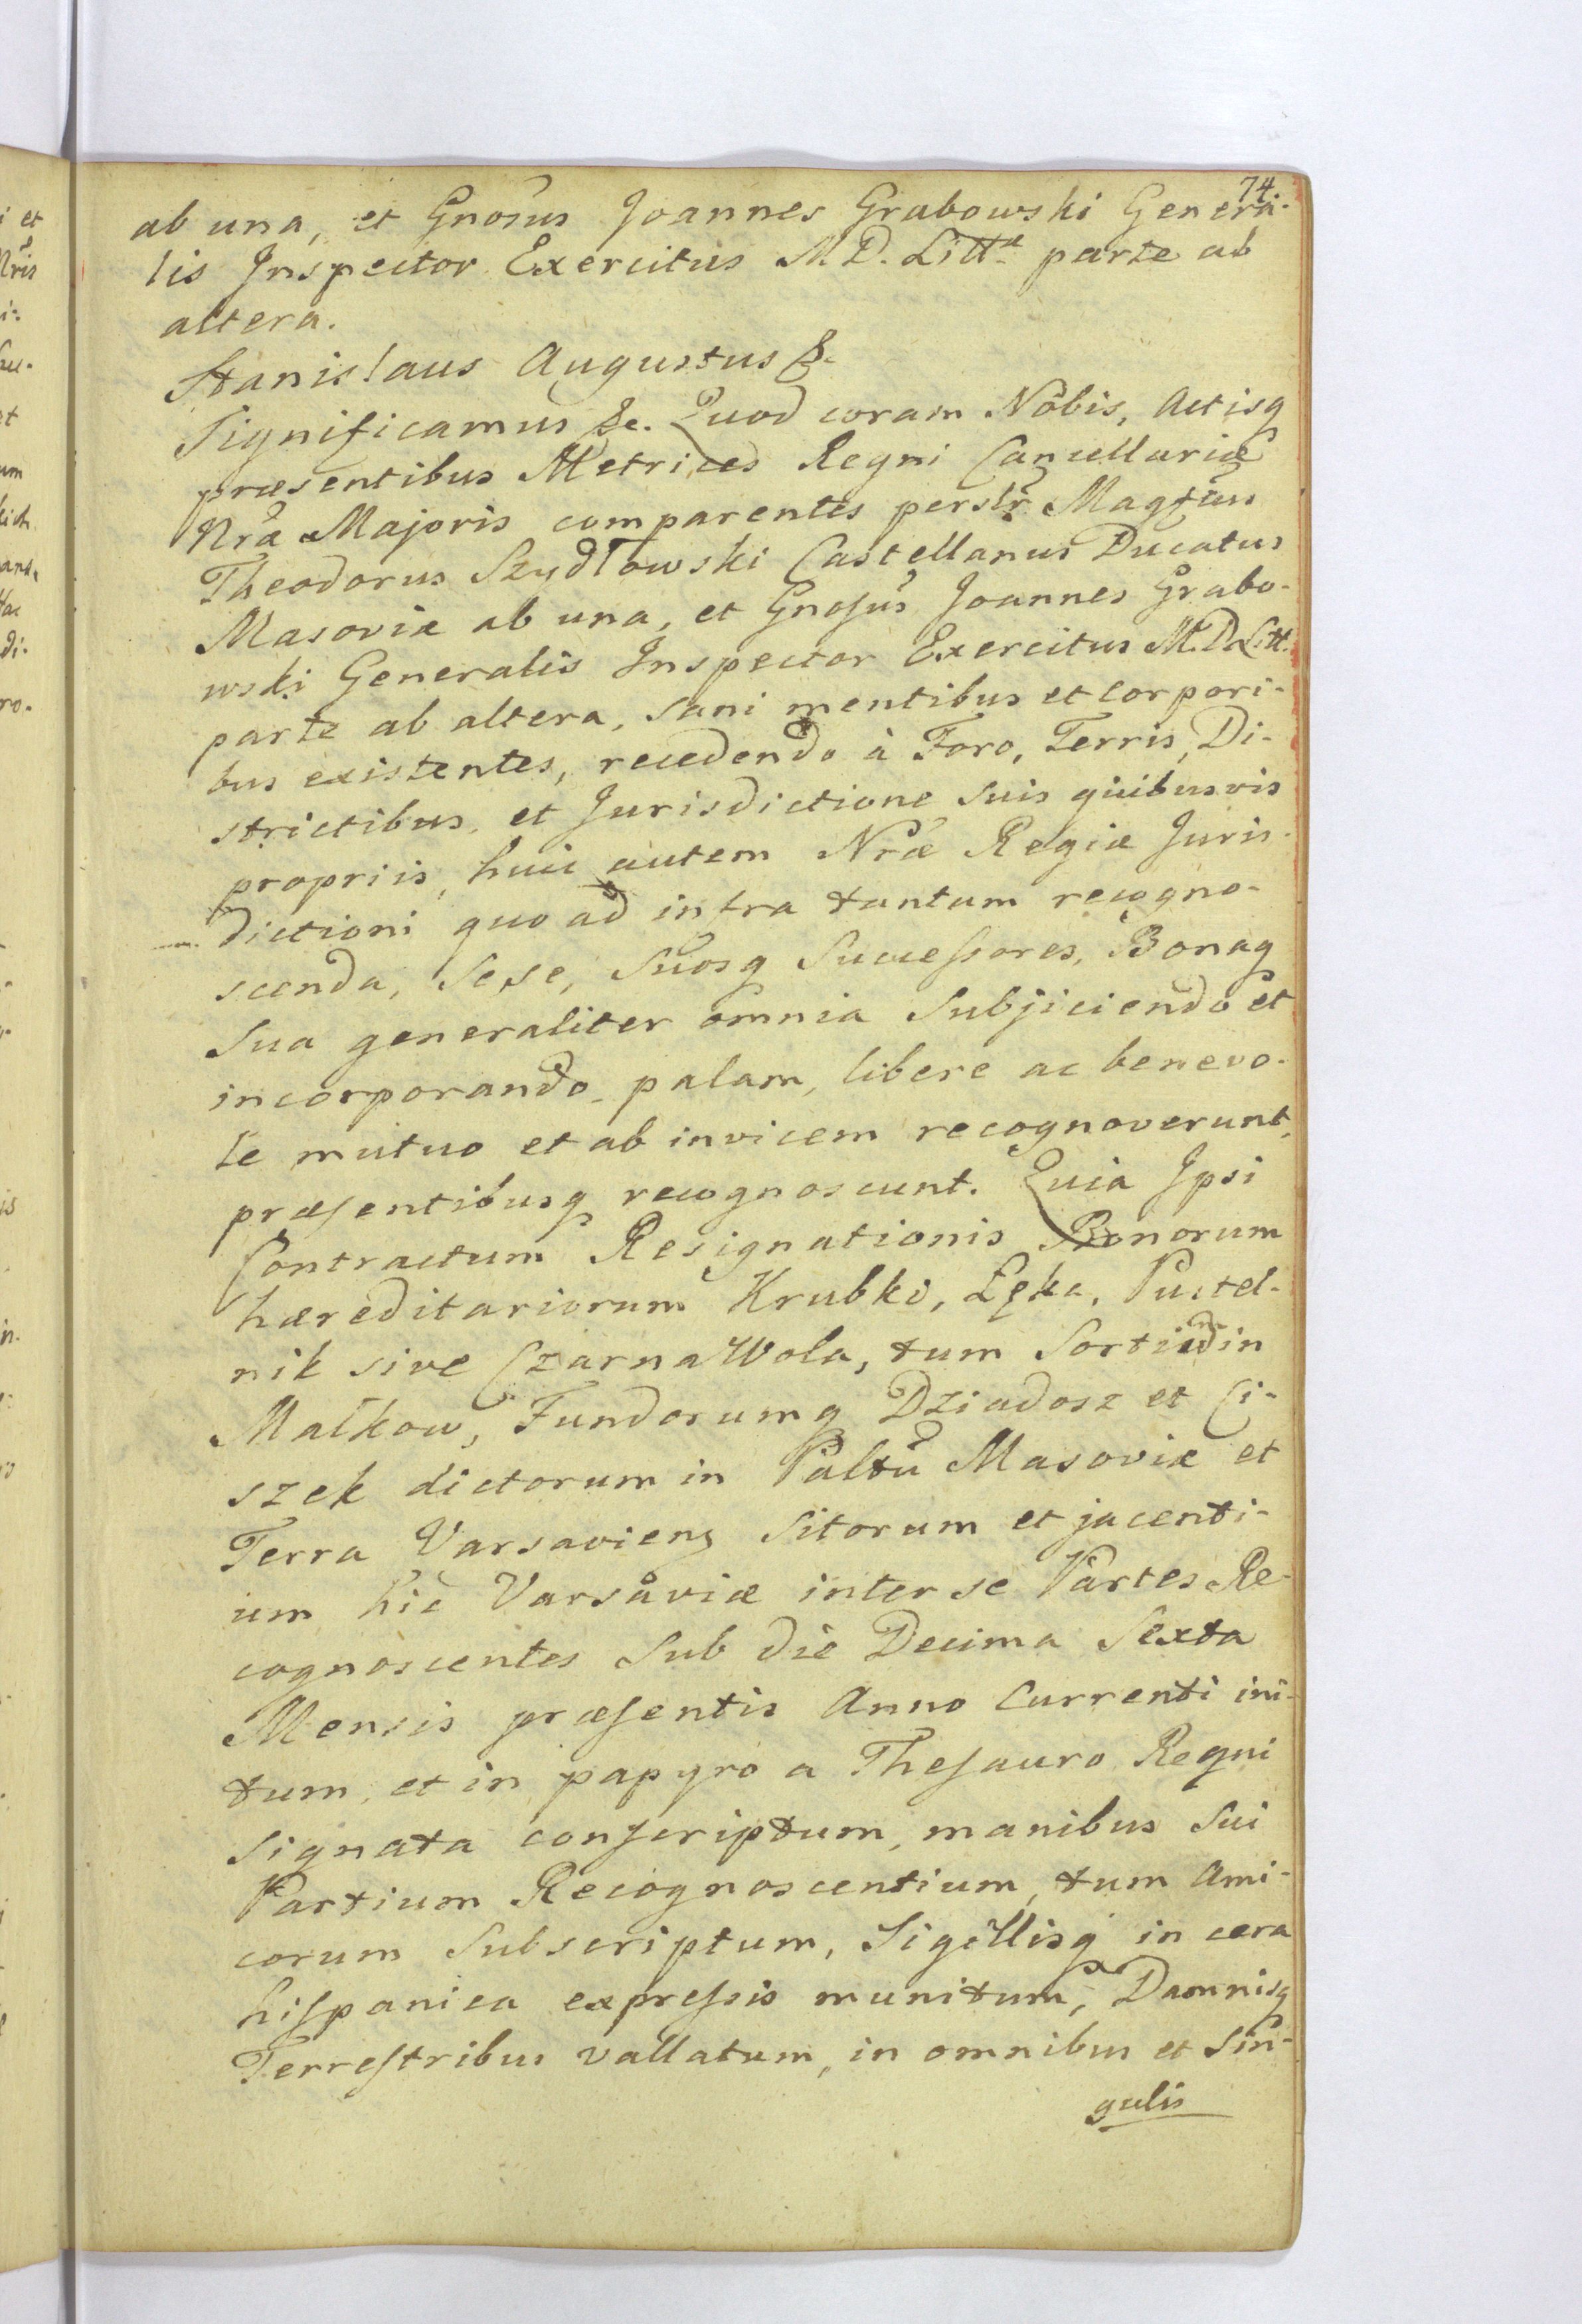 74.
ab una, et Gnosus Joannes Grabowski Genera-
lis Inspector Exercitus M. D. Littæ parte ab
altera.
Stanislaus Augustus &.
Significamus &c. Quod coram Nobis, Actisq
præsentibus Metrices Regni Cancellariæ
Nrã Majoris comparentes perslr Magfus
Theodorus Szydłowski Castellanus Ducatus
Masoviæ ab una, et Gnosus Joannes Grabo-
wski Generalis Inspector Exercitus M.D.Litt.
parte ab altera, sani mentibus et corpori-
bus existentes, recedendo à Foro, Terris, Di-
strictibus, et Jurisdictione suis quibusvis
propriis, huic autem Nræ Regiæ Juris-
dictioni quo ad infra tantum recogno-
scenda, Sese, Suosq Successores, Bonaq
Sua generaliter omnia Subjiciendo et
incorporando palam, libere ac benevo-
le mutuo et ab invicem recognoverunt,
præsentibusq recognoscunt. Quia Ipsi
Contractum Resignationis Bonorum
hæreditariorum Krubki, Łęka, Pustel-
nik sive Czarna Wola, tum Sort in
Małkow, Fundorumq Dziadosz et Ci-
szek dictorum in Paltu Masoviæ et
Terra Varsavieng Sitorum et jacenti-
um hic Varsaviæ inter se Partes Re-
cognoscentes Sub die Decima Sexta
Mensis præsentis Anno Currenti ini-
tum, et in papyro a Thesauro Regni
Signata conscriptum, manibus Sui
Partium Recognoscentium, tum Ami-
corum Subscriptum, Sigillisq in cera
hispanica expressis munitum, Damnisq
Terrestribus vallatum, in omnibus et Sin-
gulis